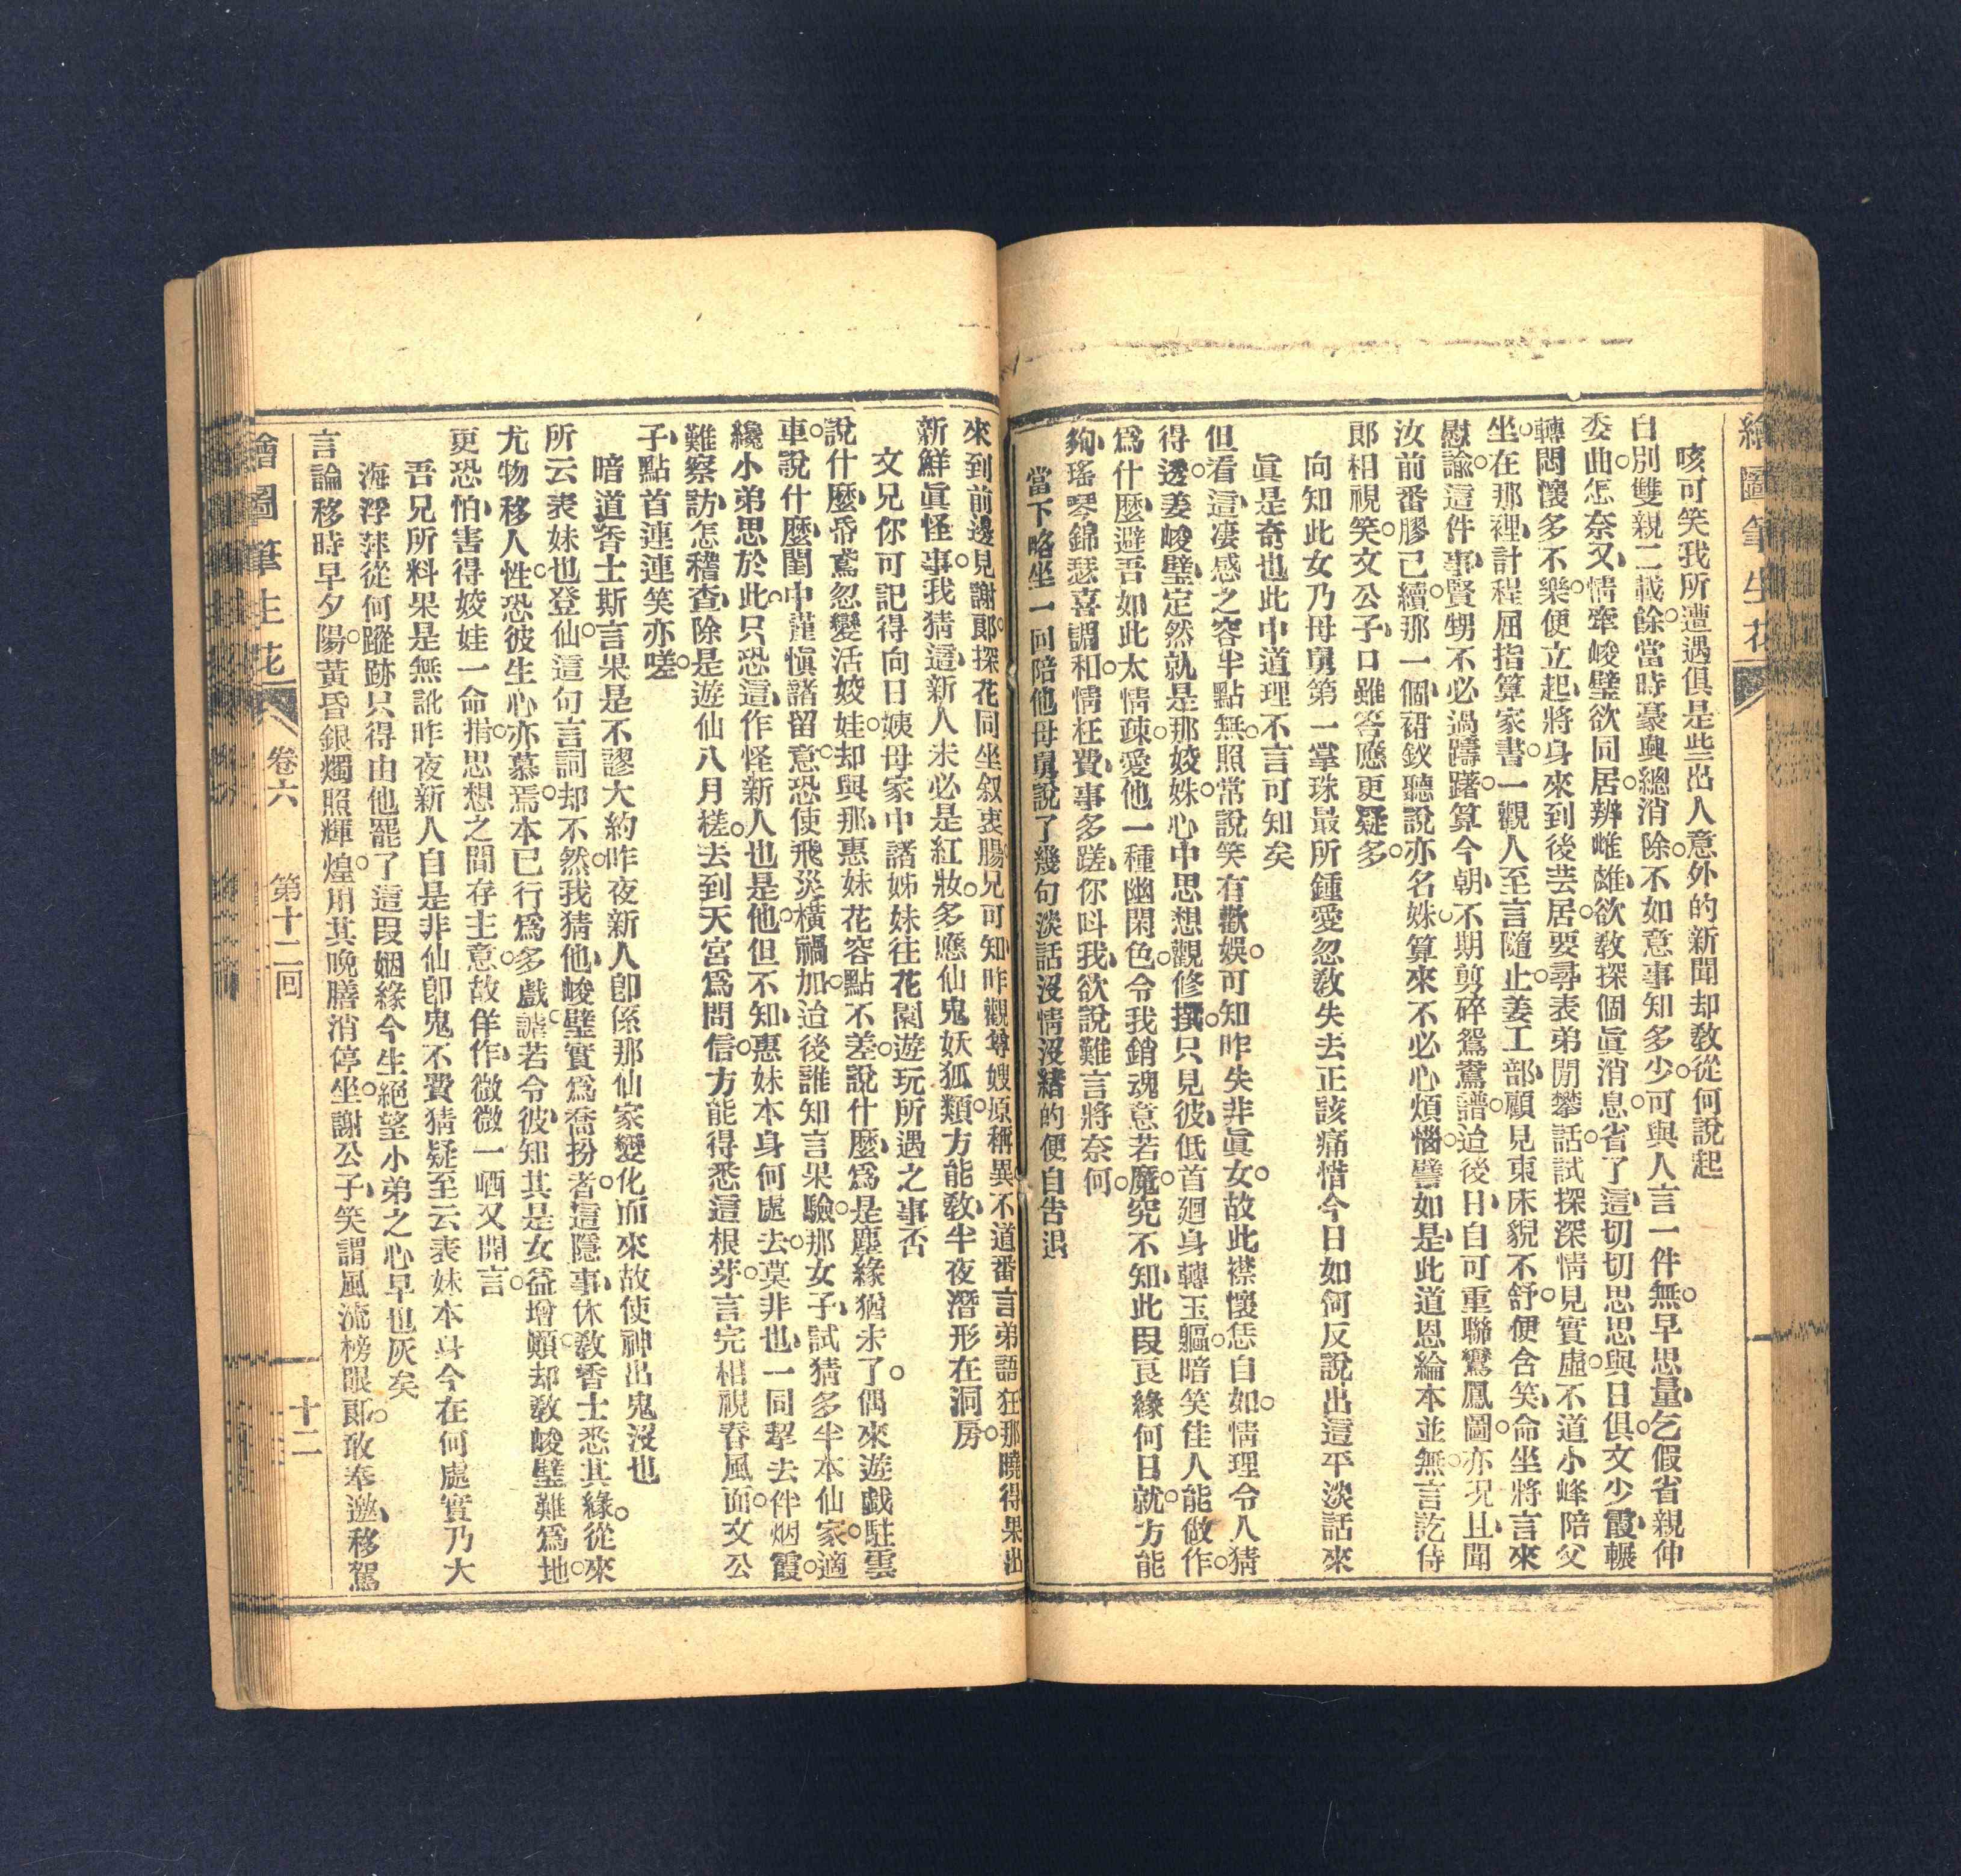 繪圖筆生花
咳可笑我所遭遇俱是些出人意外的新聞却敎從何說起
自別雙親二載餘當時豪輿總消除不如意事知多少可與人言一件無早思量乞假省親仲
委曲怎奈又情牽峻璧欲同居辨雌雄欲敎探個眞消息省了這切切思思與日俱文少霞輾
轉悶懷多不樂便立起將身來到後芸居要尋表弟閒攀話試探深情見實虛不道小峰陪父
坐在那裡計程屈指算家書一觀人至言隨止姜工部顧見東床貌不舒便含笑命坐將言來
慰諭這件事賢甥不必過躊躇算今朝不期剪碎鴛鴦譜迨後日自可重聯鸞鳳圖亦况且聞
汝前番膠己續那一個裙釵聽說亦名姝算來不必心煩惱譬如是此道恩綸本並無言訖侍
郎相視笑文公子口雖答應更疑多
向知此女乃母舅第一掌珠最所鍾愛忽敎失去正該痛惜今日如何反說出這平淡話來
眞是奇也此中道理不言可知矣
但看這凄感之容半點無照常說笑有歡娛可知昨失非眞女故此襟懷恁自如情理令人猜
得透姜峻璧定然就是那姣姝心中思想觀修撰只見彼低首廻身轉玉軀暗笑佳人能做作
爲什麼避吾如此太情疎愛他一種幽閑色令我銷魂意若魔究不知此段良緣何日就方能
夠瑤琴錦瑟喜調和情枉費事多蹉你呌我欲說難言將奈何
當下略坐一回陪他母舅說了幾句淡話沒情沒緒的便自告退
來到前邊見謝郞探花同坐叙衷腸兄可知昨觀尊嫂原稱異不道番言弟語狂那曉得果出
新鮮眞怪事我猜這新人未必是紅妝多應仙鬼妖狐類方能敎半夜潛形在洞房
文兄你可記得向日姨母家中諸姊妹往花園遊玩所遇之事否
說什麼帋鳶忽變活姣娃却與那惠妹花容點不差說什麼爲是塵緣猶未了偶來遊戱駐雲
車說什麼閨中謹愼諸留意恐使飛災橫禍加迨後誰知言果驗那女子試猜多半本仙家適
纔小弟思於此只恐這作怪新人也是他但不知惠妹本身何處去莫非也一同挈去伴烟霞
難察訪怎稽查除是遊仙八月槎去到天宮爲問信方能得悉這根芽言完相視春風面文公
子點首連連笑亦嗟
暗道香士斯言果是不謬大約昨夜新人卽係那仙家變化而來故使神出鬼沒也
所云表妹也登仙這句言詞却不然我猜他峻璧實爲喬扮者這隱事休敎香士悉其緣從來
尤物移人性恐彼生心亦慕焉本已行爲多戲謔若令彼知其是女益增顚却敎峻璧難爲地
更恐怕害得姣娃一命捐思想之間存主意故佯作微微一哂又開言
吾兄所料果是無訛昨夜新人自是非仙卽鬼不費猜疑至云表妹本身今在何處實乃大
海浮萍從何蹤跡只得由他罷了這段姻緣今生絕望小弟之心早也灰矣
言論移時早夕陽黃昏銀燭照輝煌用其晚膳消停坐謝公子笑謂風流榜眼郞敢奉邀移駕
繪圖筆生花
卷六
第十二回
十二